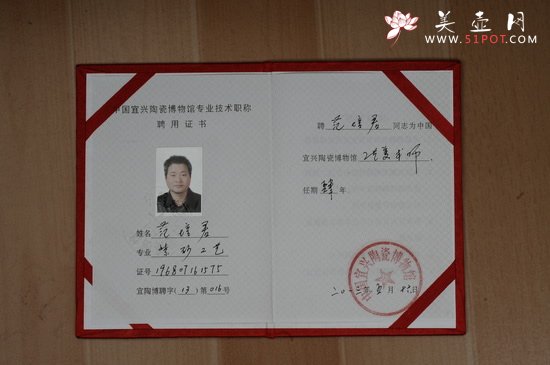 美壶网
WWW.51POT.COM
中国宜兴陶瓷博物馆专业技术职称
聘用证书
姓名 范培君
专业 紫砂工艺
证号 196807161575
宜陶博聘字(13)第016号
聘 范培君 同志为中国
宜兴陶瓷博物馆 工艺美术师.
任期 肆 年
中国宜兴陶瓷博物馆
二〇一三年 月 日